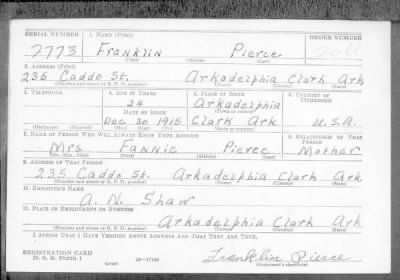 SERIAL NUMBER 1. NAME (Print) ORDER NUMBER
2773 Franklin Pierce
(First) (Middle) (Last)
2. ADDRESS (Print)
235 Caddo St. Arkadelphia Clark Ark
(Number and street or R. F. D. number) (Town) (County) (State)
3. TELEPHONE 4. AGE IN YEARS 5. PLACE OF BIRTH 6. COUNTRY OF CITIZENSHIP
24 Arkadelphia
DATE OF BIRTH (Town or county)
Dec 30 1915 Clark Ark. U.S.A.
(Exchange) (Number) (Mo.) (Day) (Yr.) (State or country)
7. NAME OF PERSON WHO WILL ALWAYS KNOW YOUR ADDRESS 8. RELATIONSHIP OF THAT PERSON
Mrs. Fannie Pierce Mother
(Mr., Mrs., Miss) (First) (Middle) (Last)
9. ADDRESS OF THAT PERSON
235 Caddo St. Arkadelphia Clark Ark
(Number and street or R. F. D. number) (Town) (County) (State)
10. EMPLOYER'S NAME
A. N. Shaw
11. PLACE OF EMPLOYMENT OR BUSINESS
Arkadelphia Clark Ark
(Number and street or R. F. D. number) (Town) (County) (State)
I AFFIRM THAT I HAVE VERIFIED ABOVE ANSWERS AND THAT THEY ARE TRUE.
REGISTRATION CARD
D. S. S. FORM 1 Franklin Pierce
(over) (Registrant's signature)